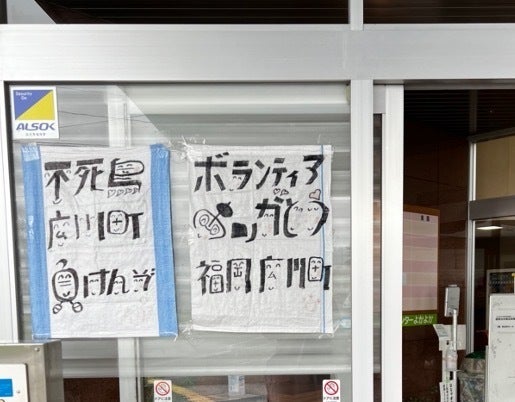 ALSOK
不死鳥
広川町
負けんぞ
ボランティア
ありがとう
福岡広川町
ターよかよか